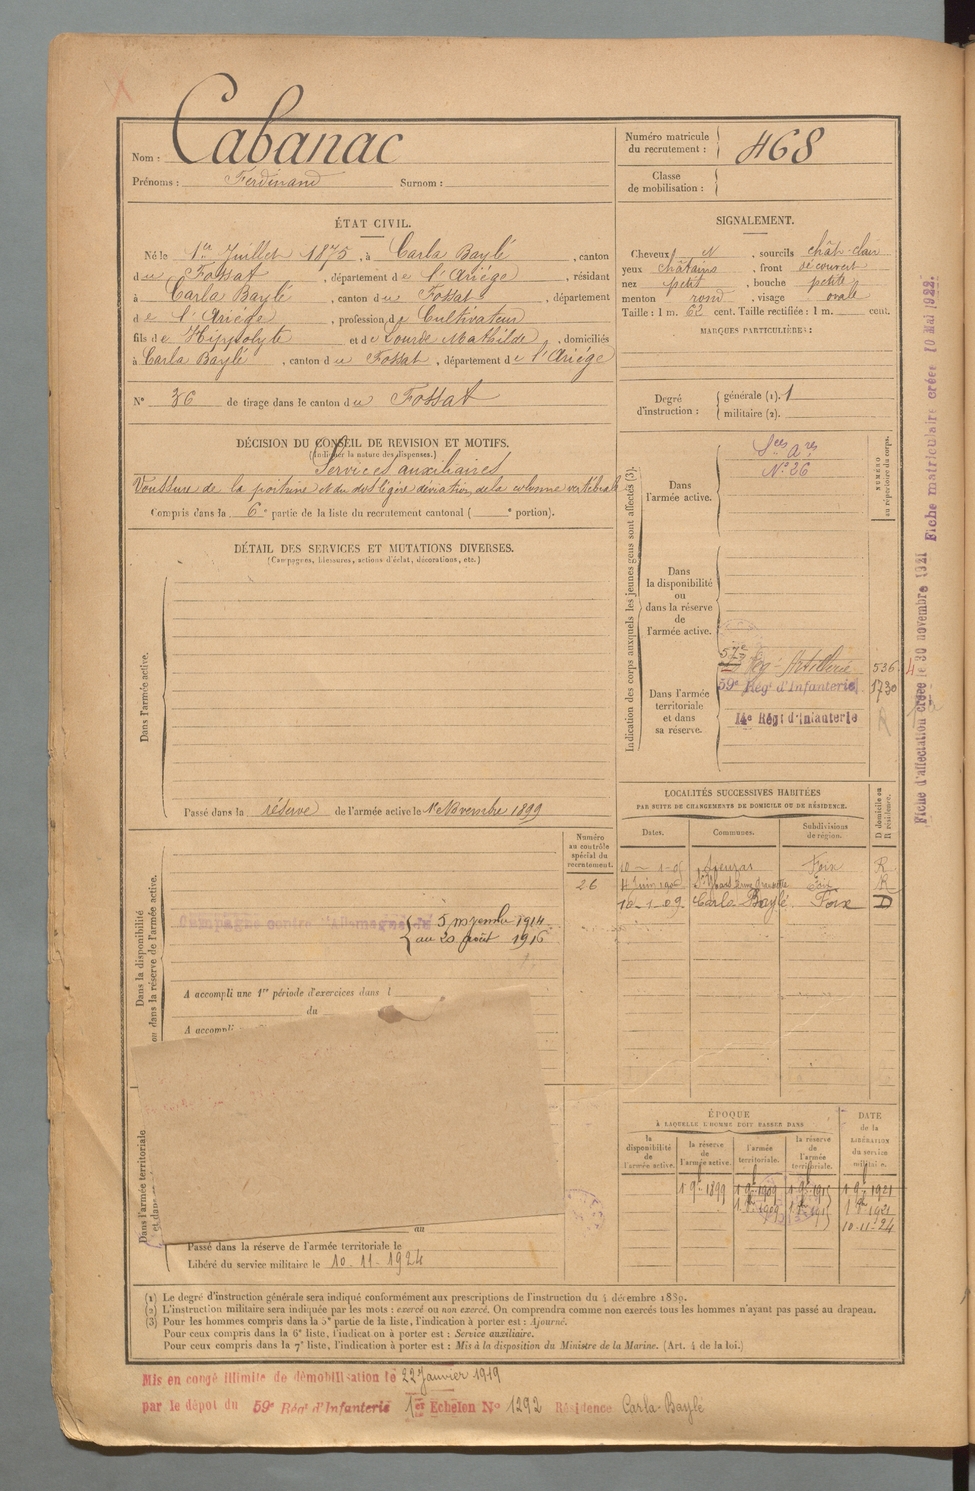 Nom : Cabanac
Prénoms : Ferdinand Surnom :
Numéro matricule du recrutement : 468
Classe de mobilisation :
ÉTAT CIVIL.
Né le 1er Juillet 1875, à Carla Baylé, canton
du Fossat, département de l'Ariège, résidant
à Carla Baylé, canton du Fossat, département
de l'Ariège, profession de Cultivateur
fils de Hippolyte et de Lourde Mathilde, domiciliés
à Carla Baylé, canton du Fossat, département de l'Ariège
N° 36 de tirage dans le canton du Fossat
SIGNALEMENT.
Cheveux N, sourcils chât-clair
yeux châtains, front découvert
nez petit, bouche petite
menton rond, visage ovale
Taille : 1 m. 62 cent. Taille rectifiée : 1 m. cent.
MARQUES PARTICULIÈRES :
Degré d'instruction : générale (1). 1
militaire (2).
DÉCISION DU CONSEIL DE REVISION ET MOTIFS.
(Indiquer la nature des dispenses.)
Services auxiliaires
Voussure de la poitrine et du dos légère déviation de la colonne vertébrale
Compris dans la 6e partie de la liste du recrutement cantonal ( e portion).
DÉTAIL DES SERVICES ET MUTATIONS DIVERSES.
(Campagnes, blessures, actions d'éclat, décorations, etc.)
Dans l'armée active.
Passé dans la réserve de l'armée active le 1er Novembre 1899
Indication des corps auxquels les jeunes gens sont affectés (3).
NUMÉRO au répertoire du corps.
Dans l'armée active.
Sces Ares
N° 26
Dans la disponibilité ou dans la réserve de l'armée active.
Dans l'armée territoriale et dans sa réserve.
57e Reg. Artillerie 536
59e Régt d'Infanterie 1730
14e Régt d'Infanterie
LOCALITÉS SUCCESSIVES HABITÉES
PAR SUITE DE CHANGEMENTS DE DOMICILE OU DE RÉSIDENCE.
Dates. Communes. Subdivisions de région. D domicile ou R résidence.
Foix R
4 Juin Foix R
16-1-09 Carla Baylé Foix D
Dans la disponibilité ou dans la réserve de l'armée active.
Numéro au contrôle spécial du recrutement.
26
Campagne contre l'Allemagne du
5 novembre 1914
au 20 août 1916
A accompli une 1re période d'exercices dans l
du
A accompli
Dans l'armée territoriale et dans
au
Passé dans la réserve de l'armée territoriale le
Libéré du service militaire le 10.11.1924
ÉPOQUE
À LAQUELLE L'HOMME DOIT PASSER DANS
la disponibilité de l'armée active. la réserve de l'armée active. l'armée territoriale. la réserve de l'armée territoriale. DATE de la LIBÉRATION du service militaire.
1 9bre 1899 1 9bre 1909 1 9bre 1915 1 9bre 1921
10-11-24
(1) Le degré d'instruction générale sera indiqué conformément aux prescriptions de l'instruction du 4 décembre 1889.
(2) L'instruction militaire sera indiquée par les mots : exercé ou non exercé. On comprendra comme non exercés tous les hommes n'ayant pas passé au drapeau.
(3) Pour les hommes compris dans la 5e partie de la liste, l'indication à porter est : Ajourné.
Pour ceux compris dans la 6e liste, l'indication à porter est : Service auxiliaire.
Pour ceux compris dans la 7e liste, l'indication à porter est : Mis à la disposition du Ministre de la Marine. (Art. 4 de la loi.)
Mis en congé illimité de démobilisation le 22 Janvier 1919
par le dépôt du 59e Régt d'Infanterie 1er Echelon N° 1292 Résidence Carla-Baylé
Fiche d'affectation créée le 30 novembre 1921 Fiche matriculaire créée 10 Mai 1922.